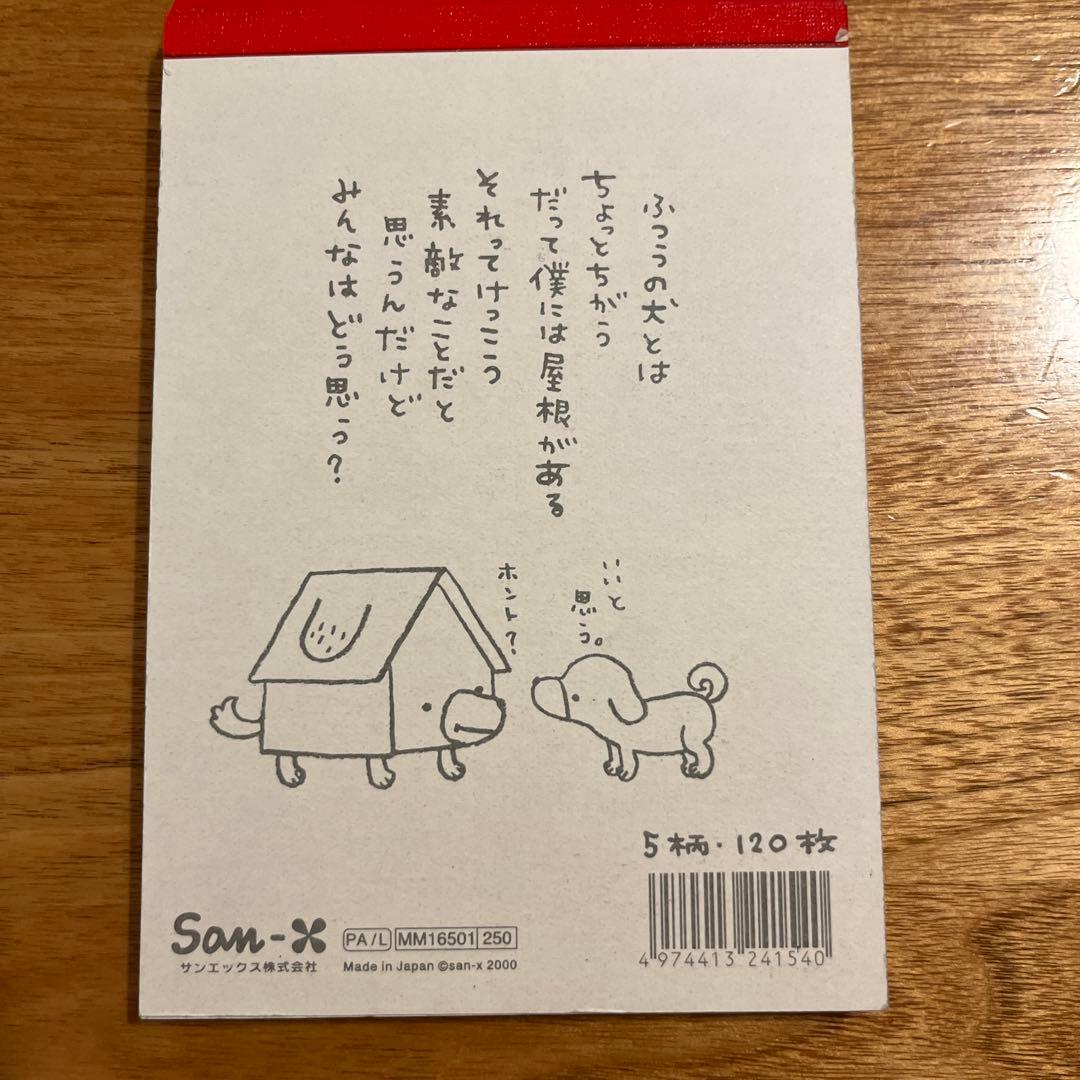 ふつうの犬とは
ちょっとちがう
だって僕には屋根がある
それってけっこう
素敵なことだと
思うんだけど
みんなはどう思う？
ホント？
いいと
思う。
5柄・120枚
San-X
サンエックス株式会社
PA/L MM16501 250
Made in Japan ©san-x 2000
4 974413 241540